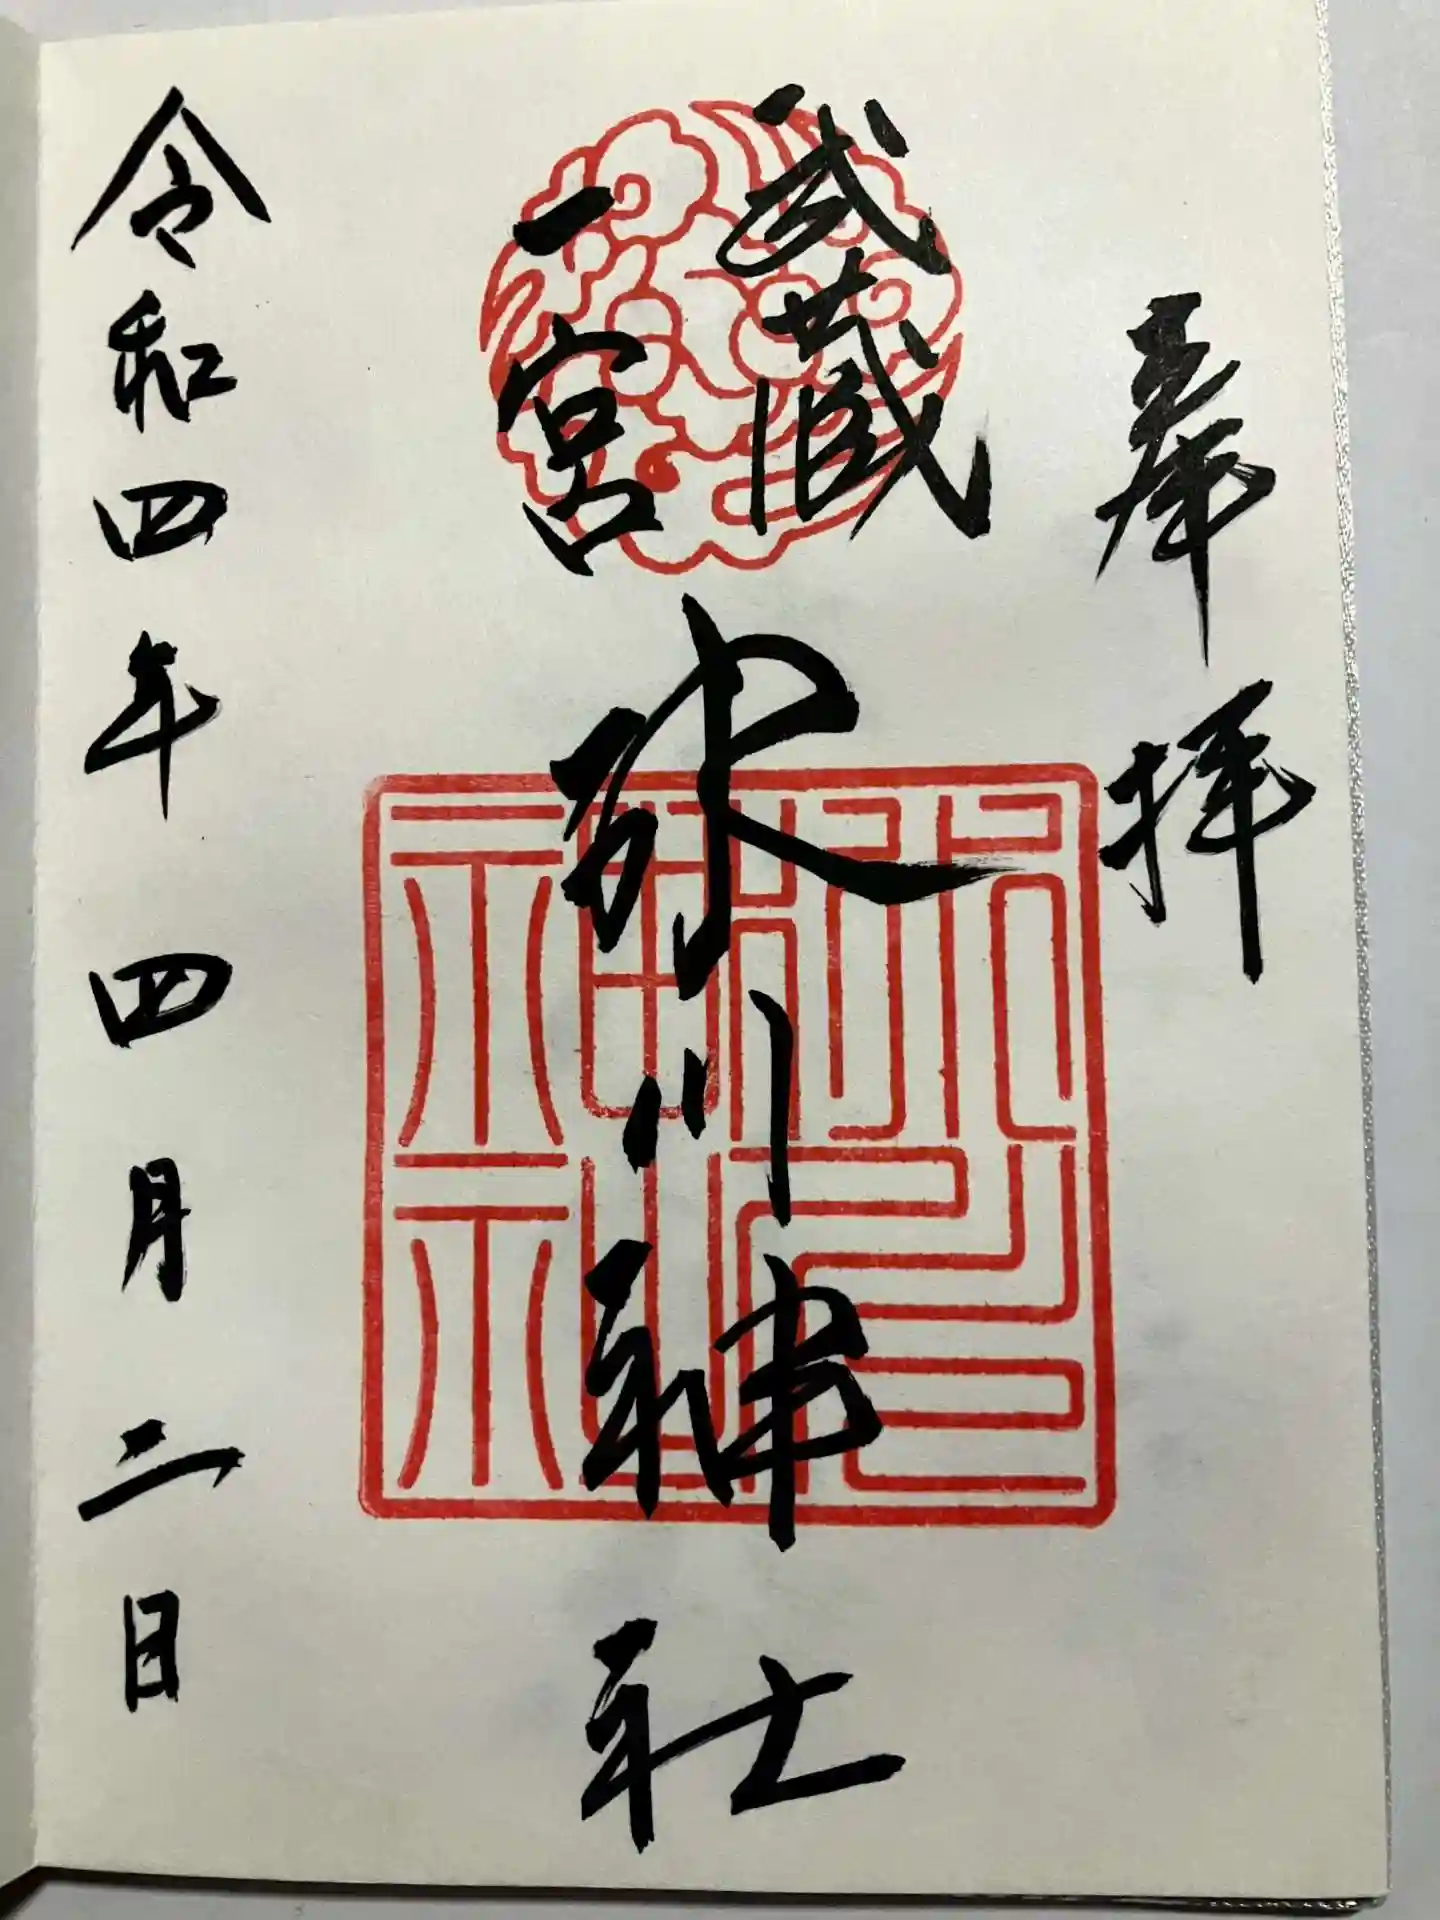 奉拝
武蔵
一宮
氷川神社
令和四年四月二日